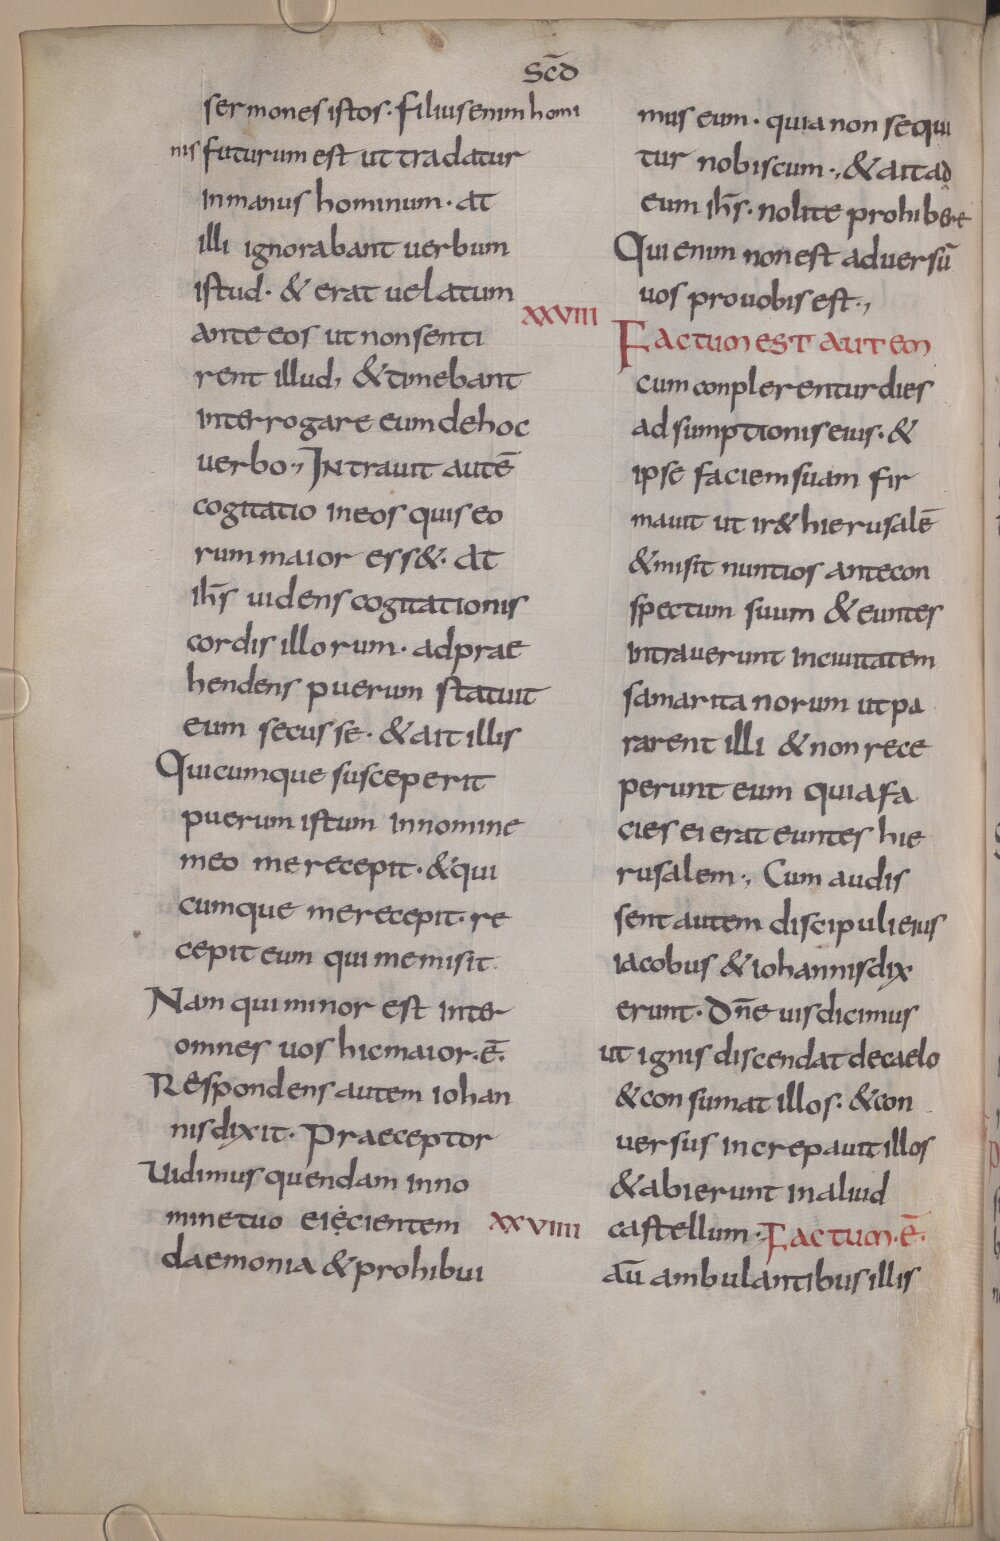 Sc̄d
sermones istos· filius enim homi
nis futurum est ut tradatur
in manus hominum· at
illi ignorabant uerbum
istud· & erat uelatum
ante eos ut non senti
rent illud, & timebant
interrogare eum de hoc
uerbo., Intrauit autē
cogitatio in eos quis eo
rum maior ess&· at
ih̄s uidens cogitationis
cordis illorum· adprae
hendens puerum statuit
eum secus se· & ait illis
Quicumque susceperit
puerum istum in nomine
meo me recepit· & qui
cumque me recepit· re
cepit eum qui me misit·
Nam qui minor est inter
omnes uos hic maior·ē·
Respondens autem iohan
nis dixit· Praeceptor
Uidimus quendam in no
mine tuo eięcientem
daemonia & prohibui
mus eum· quia non sequi
tur nobiscum·, & ait ad
eum ih̄s· nolite prohibere
Qui enim non est aduersū
uos pro uobis est·,
XXVIII
Factum est autem
cum conplerentur dies
adsumptionis eius· &
ipse faciem suam fir
mauit ut ir& hierusalē
& misit nuntios ante con
spectum suum & euntes
intrauerunt in ciuitatem
samaritanorum ut pa
rarent illi & non rece
perunt eum quia fa
cies ei erat euntes hie
rusalem·, Cum audis
sent autem discipuli eius
iacobus & iohannis dix
erunt· Dn̄e uis dicimus
ut ignis discendat de caelo
& consumat illos· & con
uersus increpauit illos
& abierunt in aliud
XXVIIII
castellum·, Factum·ē·
aū ambulantibus illis